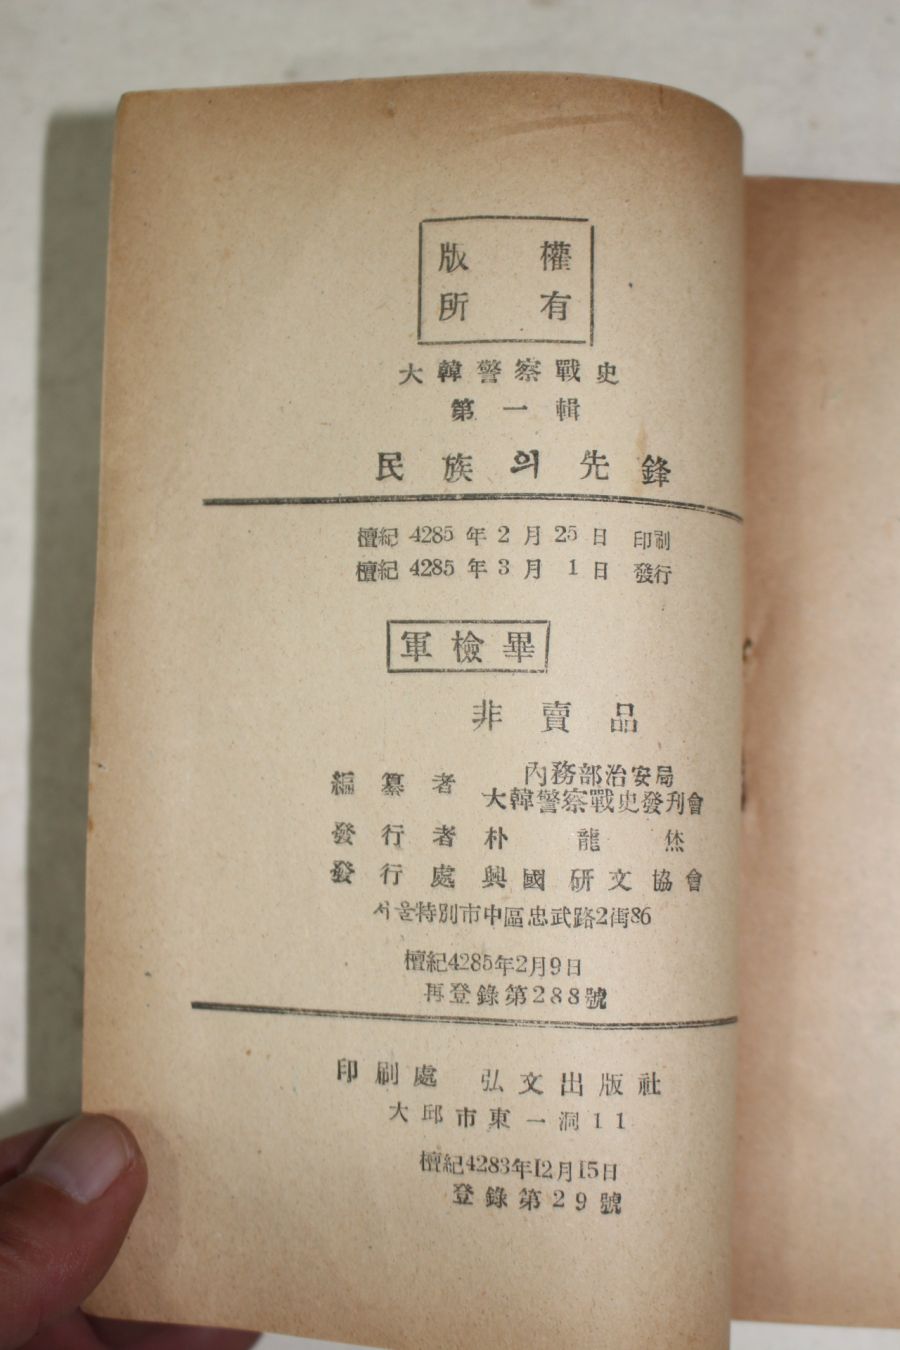 版權
所有
大韓警察戰史
第一輯
民族의先鋒
檀紀 4285 年 2 月 25 日 印刷
檀紀 4285 年 3 月 1 日 發行
軍檢畢
非賣品
編纂者 內務部治安局
大韓警察戰史發刊會
發行者 朴龍
發行處 興國硏文協會
서울特別市中區忠武路2街86
檀紀4285年2月9日
再登錄第288號
印刷處 弘文出版社
大邱市東一洞11
檀紀4283年12月15日
登錄第29號